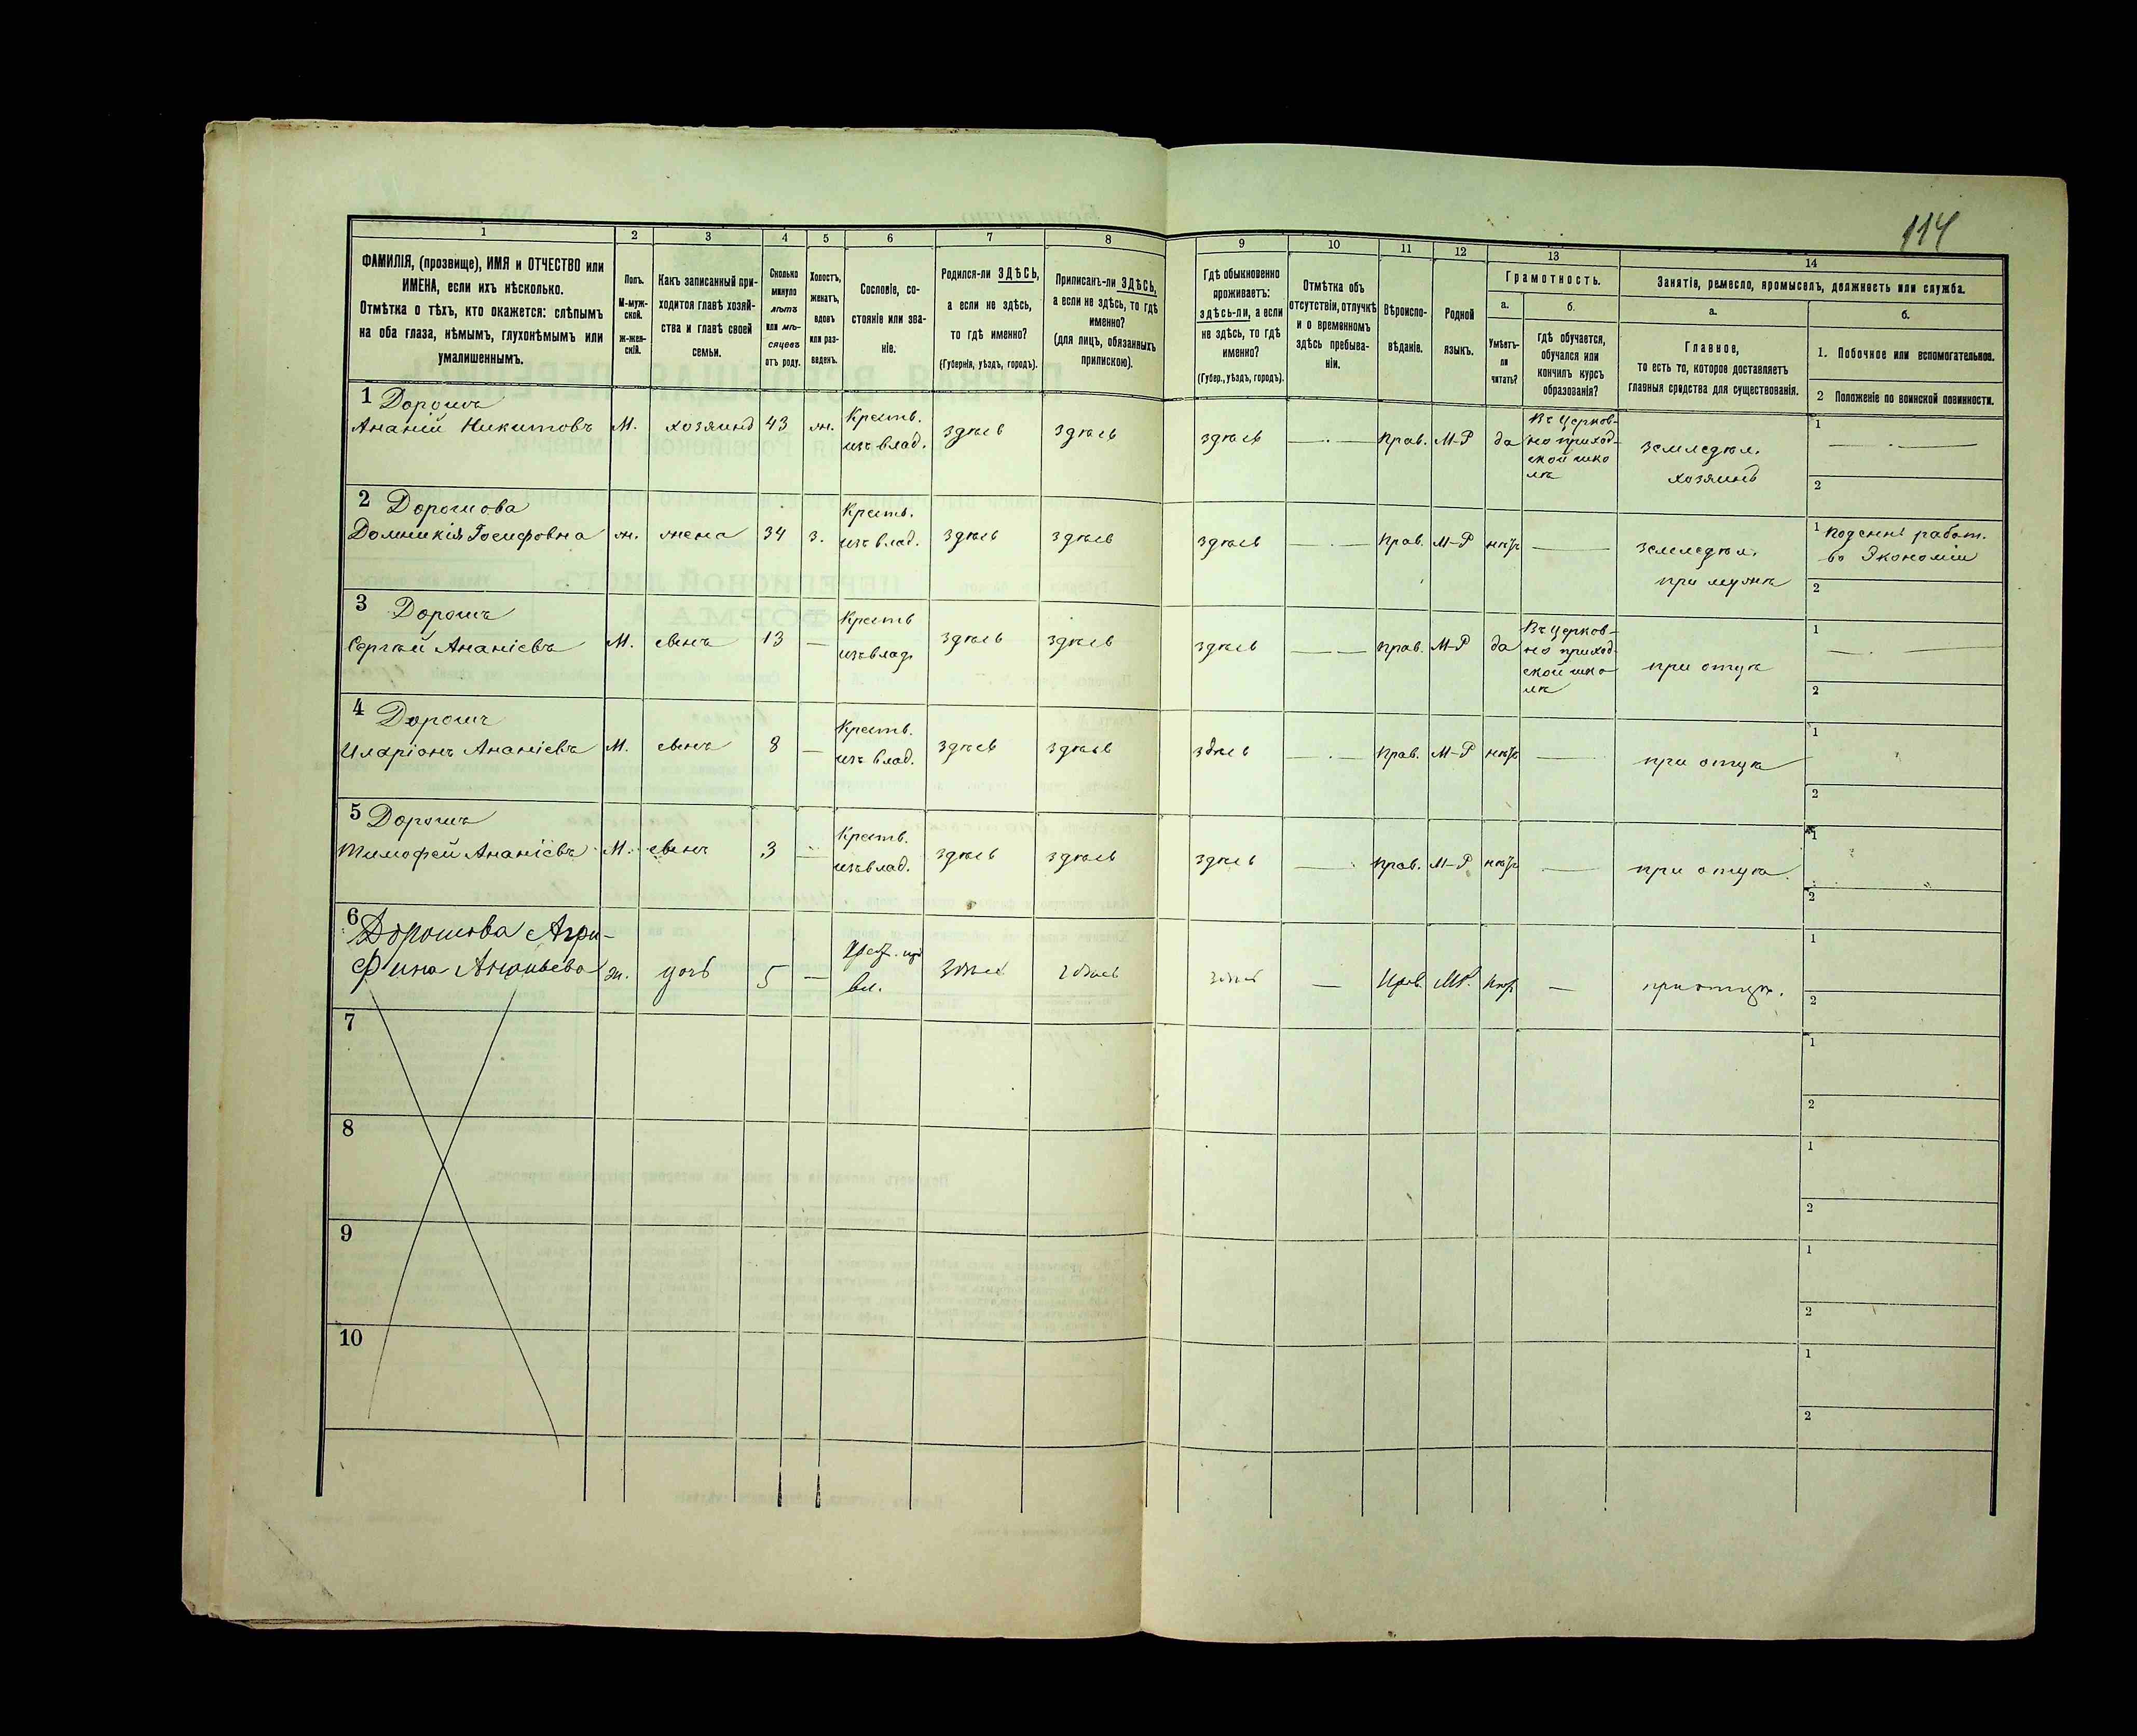 114
1 2 3 4 5 6 7 8 9 10 11 12 13 14
ФАМИЛІЯ, (прозвище), ИМЯ и ОТЧЕСТВО или
ИМЕНА, если ихъ нѣсколько.
Отмѣтка о тѣхъ, кто окажется: слѣпымъ
на оба глаза, нѣмымъ, глухонѣмымъ или
умалишеннымъ.
Полъ.
М-муж-
ской.
Ж-жен-
скій.
Какъ записанный при-
ходится главѣ хозяй-
ства и главѣ своей
семьи.
Сколько
минуло
лѣтъ
или мѣ-
сяцевъ
отъ роду.
Холостъ,
женатъ,
вдовъ
или раз-
веденъ.
Сословіе, со-
стояніе или зва-
ніе.
Родился-ли ЗДѢСЬ,
а если не здѣсь,
то гдѣ именно?
(Губернія, уѣздъ, городъ).
Приписанъ-ли ЗДѢСЬ,
а если не здѣсь, то гдѣ
именно?
(для лицъ, обязанныхъ
припискою).
Гдѣ обыкновенно
проживаетъ:
здѣсь-ли, а если
не здѣсь, то гдѣ
именно?
(Губер., уѣздъ, городъ).
Отмѣтка объ
отсутствіи, отлучкѣ
и о временномъ
здѣсь пребыва-
ніи.
Вѣроиспо-
вѣданіе.
Родной
языкъ.
Грамотность.
а.
Умѣетъ-
ли
читать?
б.
гдѣ обучается,
обучался или
кончилъ курсъ
образованія?
Занятіе, ремесло, промыселъ, должность или служба.
а.
Главное,
то есть то, которое доставляетъ
главныя средства для существованія.
б.
1. Побочное или вспомогательное.
2 Положеніе по воинской повинности.
1 Дорошъ
Ананій Никитовъ М. хозяинъ 43 ж. Крестъ. изъ влад. здѣсь здѣсь здѣсь — Прав. М-Р да Въ Церков-
но приход-
ской шко
лѣ
земледѣл.
хозяинъ
1
2
2 Дорошова
Домникія Іосифовна ж. жена 34 з. Крестъ. изъ влад. здѣсь здѣсь здѣсь — Прав. М-Р нѣтъ —
земледѣл.
при мужѣ
1 Поденн. работ.
во Экономіи
2
3 Дорошъ
Сергѣй Ананіевъ М. сынъ 13 — Крестъ изъ влад. здѣсь здѣсь здѣсь — Прав. М-Р да Въ Церков-
но приход-
ской шко
лѣ
при отцѣ
1
2
4 Дорошъ
Иларіонъ Ананіевъ М. сынъ 8 — Крестъ. изъ влад. здѣсь здѣсь здѣсь — Прав. М-Р нѣтъ — при отцѣ
1
2
5 Дорошъ
Тимофей Ананіевъ М. сынъ 3 — Крестъ. изъ влад. здѣсь здѣсь здѣсь — Прав. М-Р нѣтъ — при отцѣ.
1
2
6 Дорошова Агри-
фина Ананьева ж. дочь 5 — Крест. изъ вл. здѣсь здѣсь здѣсь — Прав. МР. нѣт — при отцѣ.
1
2
7
1
2
8
1
2
9
1
2
10
1
2